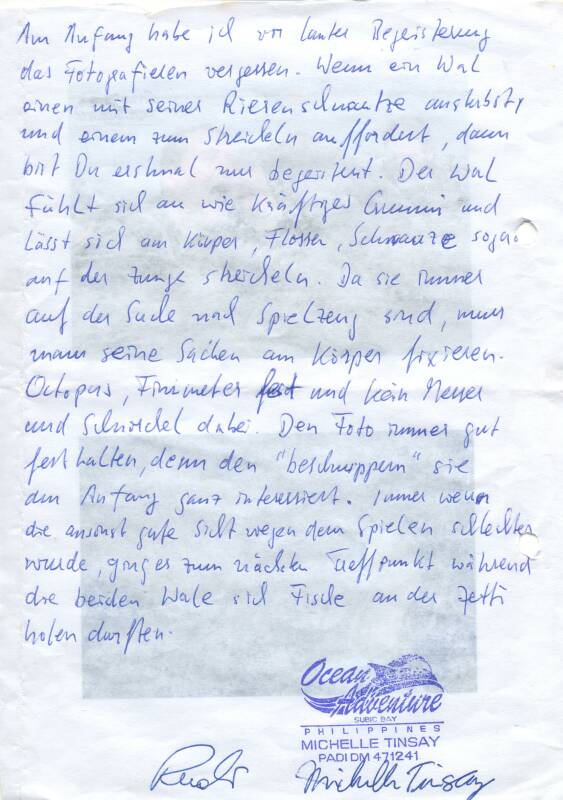 Am Anfang habe ich vor lauter Begeisterung
das Fotografieren vergessen. Wenn ein Wal
einen mit seiner Riesenschnautze anstubst
und einem zum Streicheln auffordert, dann
bist Du erstmal nur begeistert. Der Wal
fühlt sich an wie kräftiges Gummi und
lässt sich am Körper, Flossen, Schnauze sogar
auf der Zunge streicheln. Da sie immer
auf der Suche nach Spielzeug sind, muss
mann seine Sachen am Körper fixieren.
Octopus, Finimeter fest und kein Messer
und Schnorchel dabei. Den Foto immer gut
festhalten, denn den "beschnuppern" sie
am Anfang ganz interessiert. Immer wenn
die ansonst gute Sicht wegen dem Spielen schlechter
wurde, ging es zum nächsten Treffpunkt während
die beiden Wale sich Fische an der
holen durften.
Ocean
Adventure
SUBIC BAY
PHILIPPINES
MICHELLE TINSAY
PADI DM 471241
Michelle Tinsay